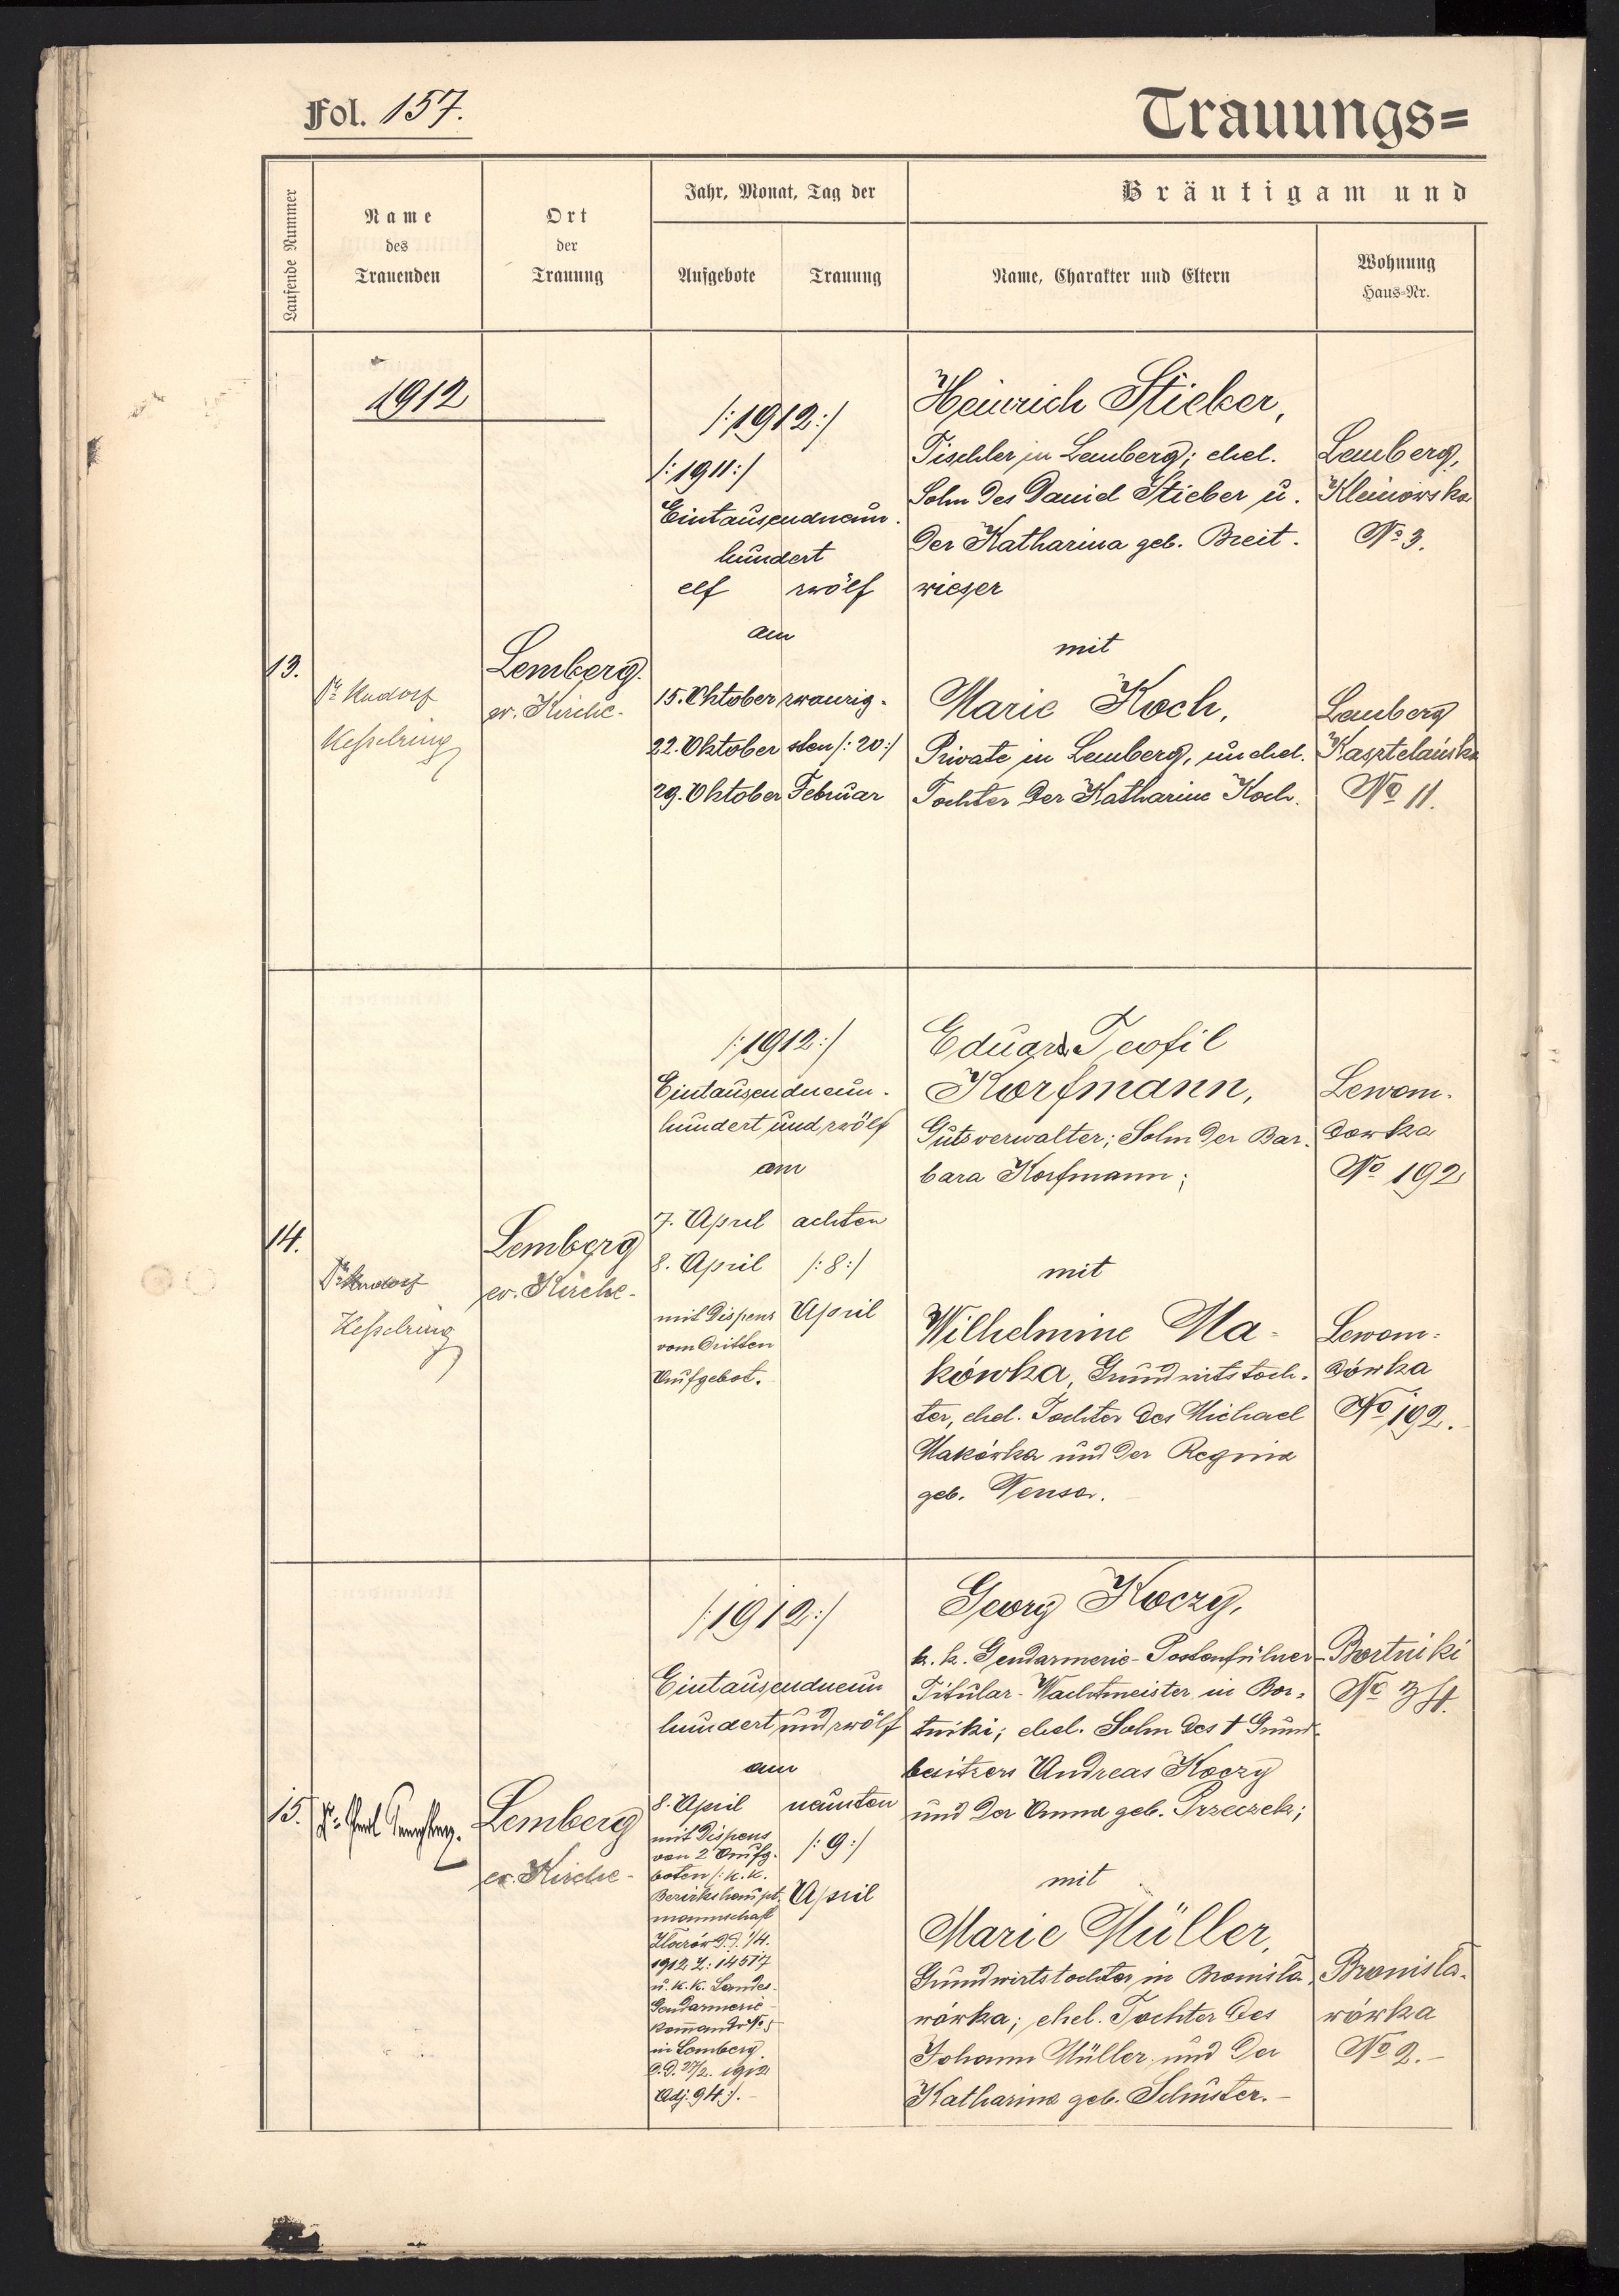 Fol. 157.
Trauungs=
Laufende Nummer
Name
des
Trauenden
Ort
der
Trauung
Jahr, Monat, Tag der
Aufgebote
Trauung
Bräutigam und
Name, Charakter und Eltern
Wohnung
Haus=Nr.
1912
13.
Dr. Rudolf
Kesselring
Lemberg.
ev. Kirche-
/:1912:/
/:1911:/
Eintausendneun-
hundert
elf zwölf
am
15. Oktober zwanzig-
22. Oktober sten /:20:/
29. Oktober Februar
Heinrich Stieber,
Tischler in Lemberg; ehel.
Sohn des Daniel Stieber u.
der Katharina geb. Breit-
wieser
mit
Marie Koch,
Private in Lemberg, unehel.
Tochter der Katharine Koch.
Lemberg,
Kleinowska
No 3.
Lemberg
Kasztelańska
No 11.
14.
Dr. Rudolf
Kesselring
Lemberg
ev. Kirche-
/:1912:/
Eintausendneun-
hundert und zwölf
am
7. April achten
8. April /:8:/
mit Dispens April
vom dritten
Aufgebot.
Eduard Teofil
Korfmann,
Gutsverwalter; Sohn der Bar-
bara Korfmann;
mit
Wilhelmine Ma-
kówka, Grundwirtstoch-
ter, ehel. Tochter des Michael
Makówka und der Regina
geb. Tensor.
Lewan-
dowka
No 192
Lewan-
dówka
No 192.
15.
Lemberg
ev. Kirche-
/:1912:/
Eintausendneun
hundert und zwölf
am
8. April neunten
mit Dispens
von 2 Aufg- /:9:/
boten /:k.k.
Bezirkshaupt- April
mannschaft
d.d. 1/4.
1912 Z: 14517
u. k. k. Landes-
Gendarmerie-
kommando No 5
in Lemberg
d.d. 27/2. 1912
Adj. 94:/.-
Georg Koczy,
k. k. Gendarmerie-Postenführer-
Titular-Wachtmeister in Bor-
tniki; ehel. Sohn des † Grund-
besitzers Andreas Koczy
und der Anna geb. Przeczek;
mit
Marie Müller,
Grundwirtstochter in Bronisla-
wówka; ehel. Tochter des
Johann Müller und der
Katharina geb. Schuster.-
Bortniki
No 34.
Bronisla-
wówka
No 2.-